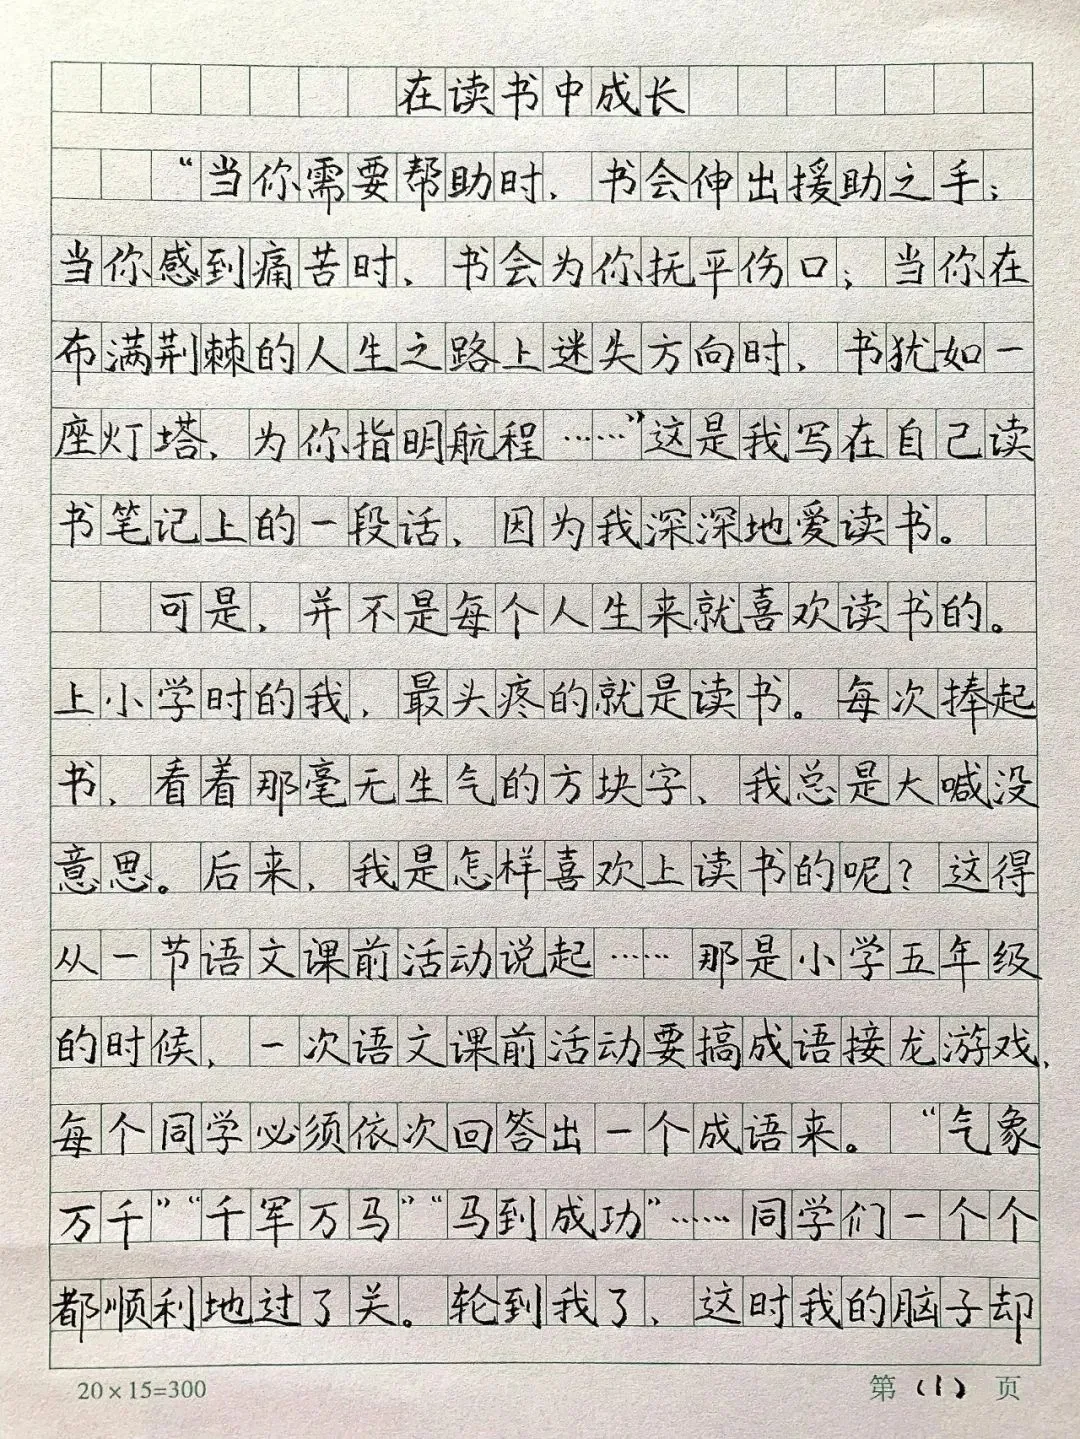 在读书中成长
“当你需要帮助时，书会伸出援助之手；
当你感到痛苦时，书会为你抚平伤口；当你在
布满荆棘的人生之路上迷失方向时，书犹如一
座灯塔，为你指明航程……”这是我写在自己读
书笔记上的一段话，因为我深深地爱读书。
可是，并不是每个人生来就喜欢读书的。
上小学时的我，最头疼的就是读书。每次捧起
书，看着那毫无生气的方块字，我总是大喊没
意思。后来，我是怎样喜欢上读书的呢？这得
从一节语文课前活动说起……那是小学五年级
的时候，一次语文课前活动要搞成语接龙游戏，
每个同学必须依次回答出一个成语来。“气象
万千”“千军万马”“马到成功”……同学们一个个
都顺利地过了关。轮到我了，这时我的脑子却
20×15=300
第(1)页